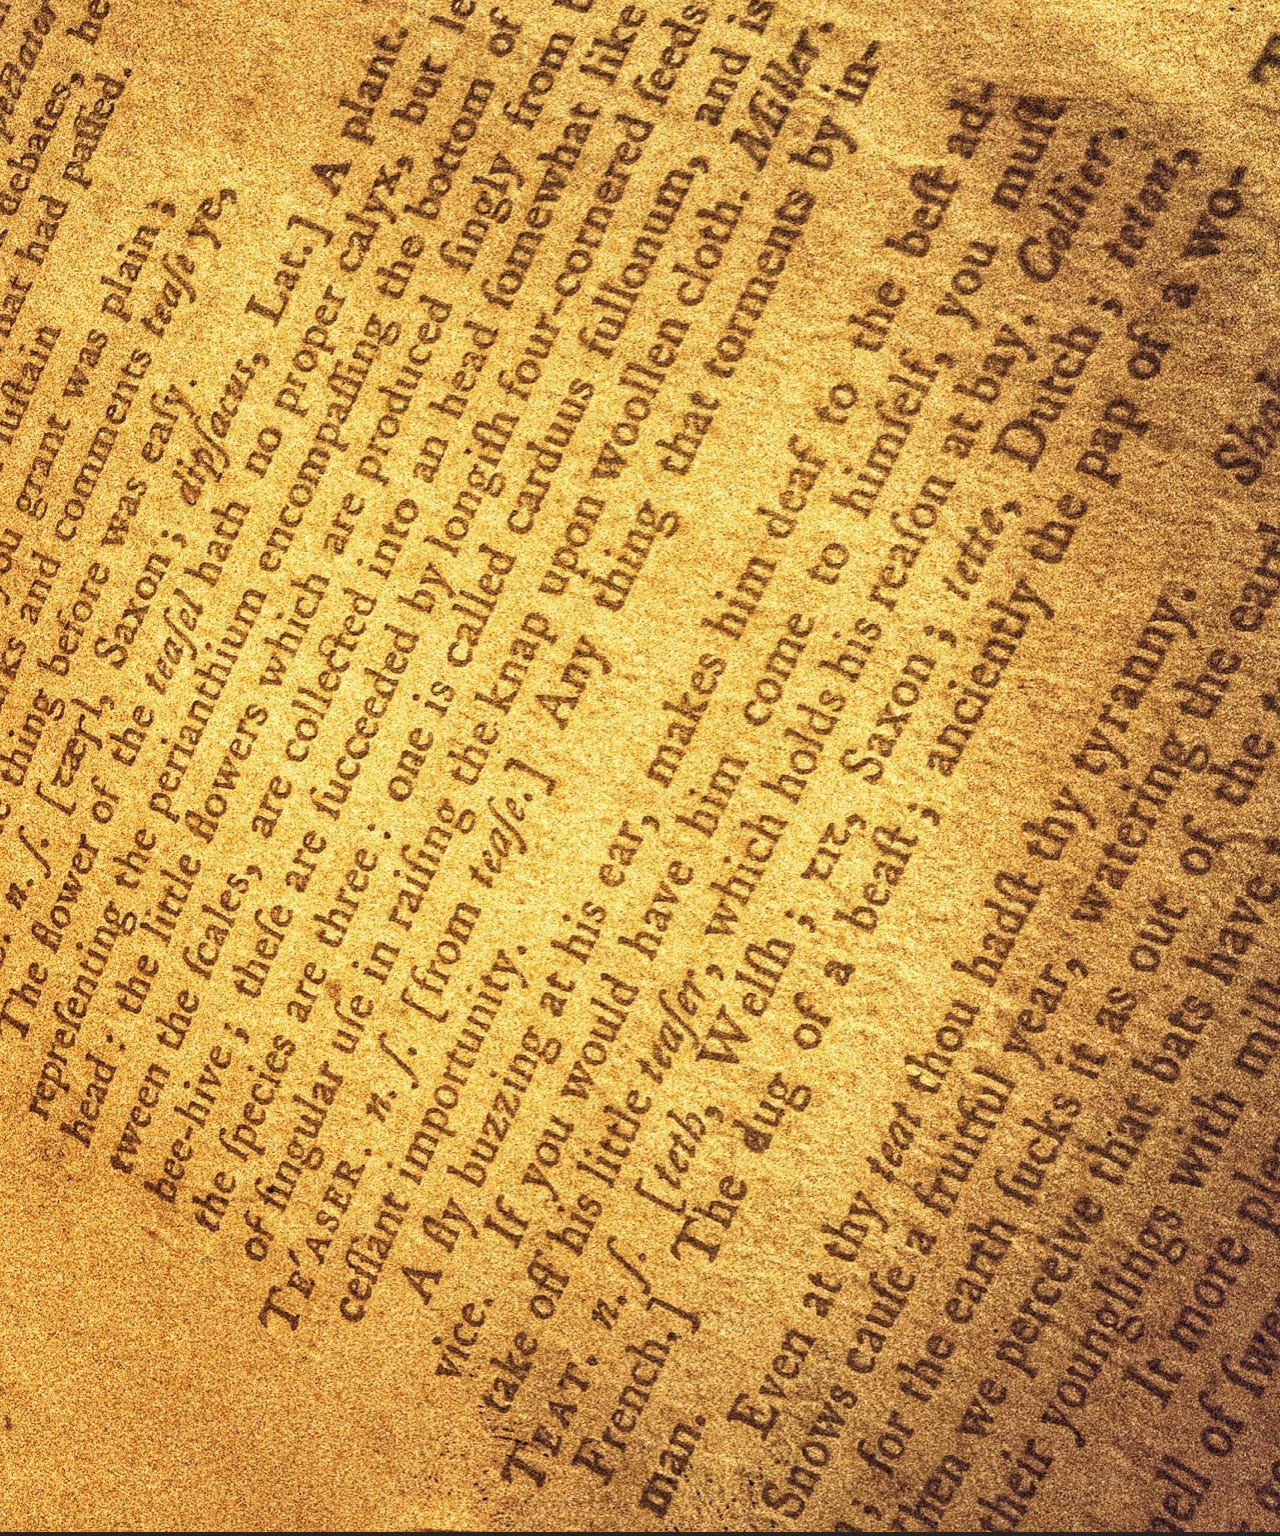 debates, he
had paſſed.
ſuſtain
grant was plain;
and comments teaſe ye,
thing before was eaſy.
n. ſ. [ꞇæꞅl, Saxon; dipſacus, Lat.] A plant.
The flower of the teaſel hath no proper calyx, but
repreſenting the perianthium encompaſſing the bottom of
head: the little flowers which are produced ſingly from
tween the ſcales, are collected into an head ſomewhat like
bee-hive; theſe are ſucceeded by longiſh four-cornered ſeeds
the ſpecies are three; one is called carduus fullonum, and is
of ſingular uſe in raiſing the knap upon woollen cloth. Miller.
TE'ASER. n. ſ. [from teaſe.] Any thing that torments by in-
ceſſant importunity.
A fly buzzing at his ear, makes him deaf to the beſt ad-
vice. If you would have him come to himſelf, you muſt
take off his little teaſer, which holds his reaſon at bay. Collier.
TEAT. n. ſ. [teth, Welſh; ꞇiꞇ, Saxon; tette, Dutch; teton,
French.] The dug of a beaſt; anciently the pap of a wo-
man.
Even at thy teat thou hadſt thy tyranny.
Snows cauſe a fruitful year, watering the
; for the earth ſucks it as out of the
we perceive that bats have
their younglings with
It more
of